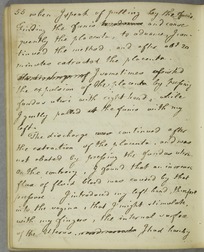 55 when I speak of pulling by the funis
Pulling the funis and conse-
quently the placenta, to advance, I con-
tinued the method, and after abt 20
minutes extracted the placenta.
I sometimes assisted
the expulsion of the placenta by pressing
fundus uteri with right hand, while
I gently pulled at the funis with my
left.
The discharge continued after
the extraction of the placenta, and was
not abated by pressing the fundus uteri
on the contrary, I found that an increased
flow of fluid blood was caused by that
pressure. I introduced my left hand
into the vagina, that I might stimulate,
with my fingers, the internal surface
of the Uterus. I had hardly